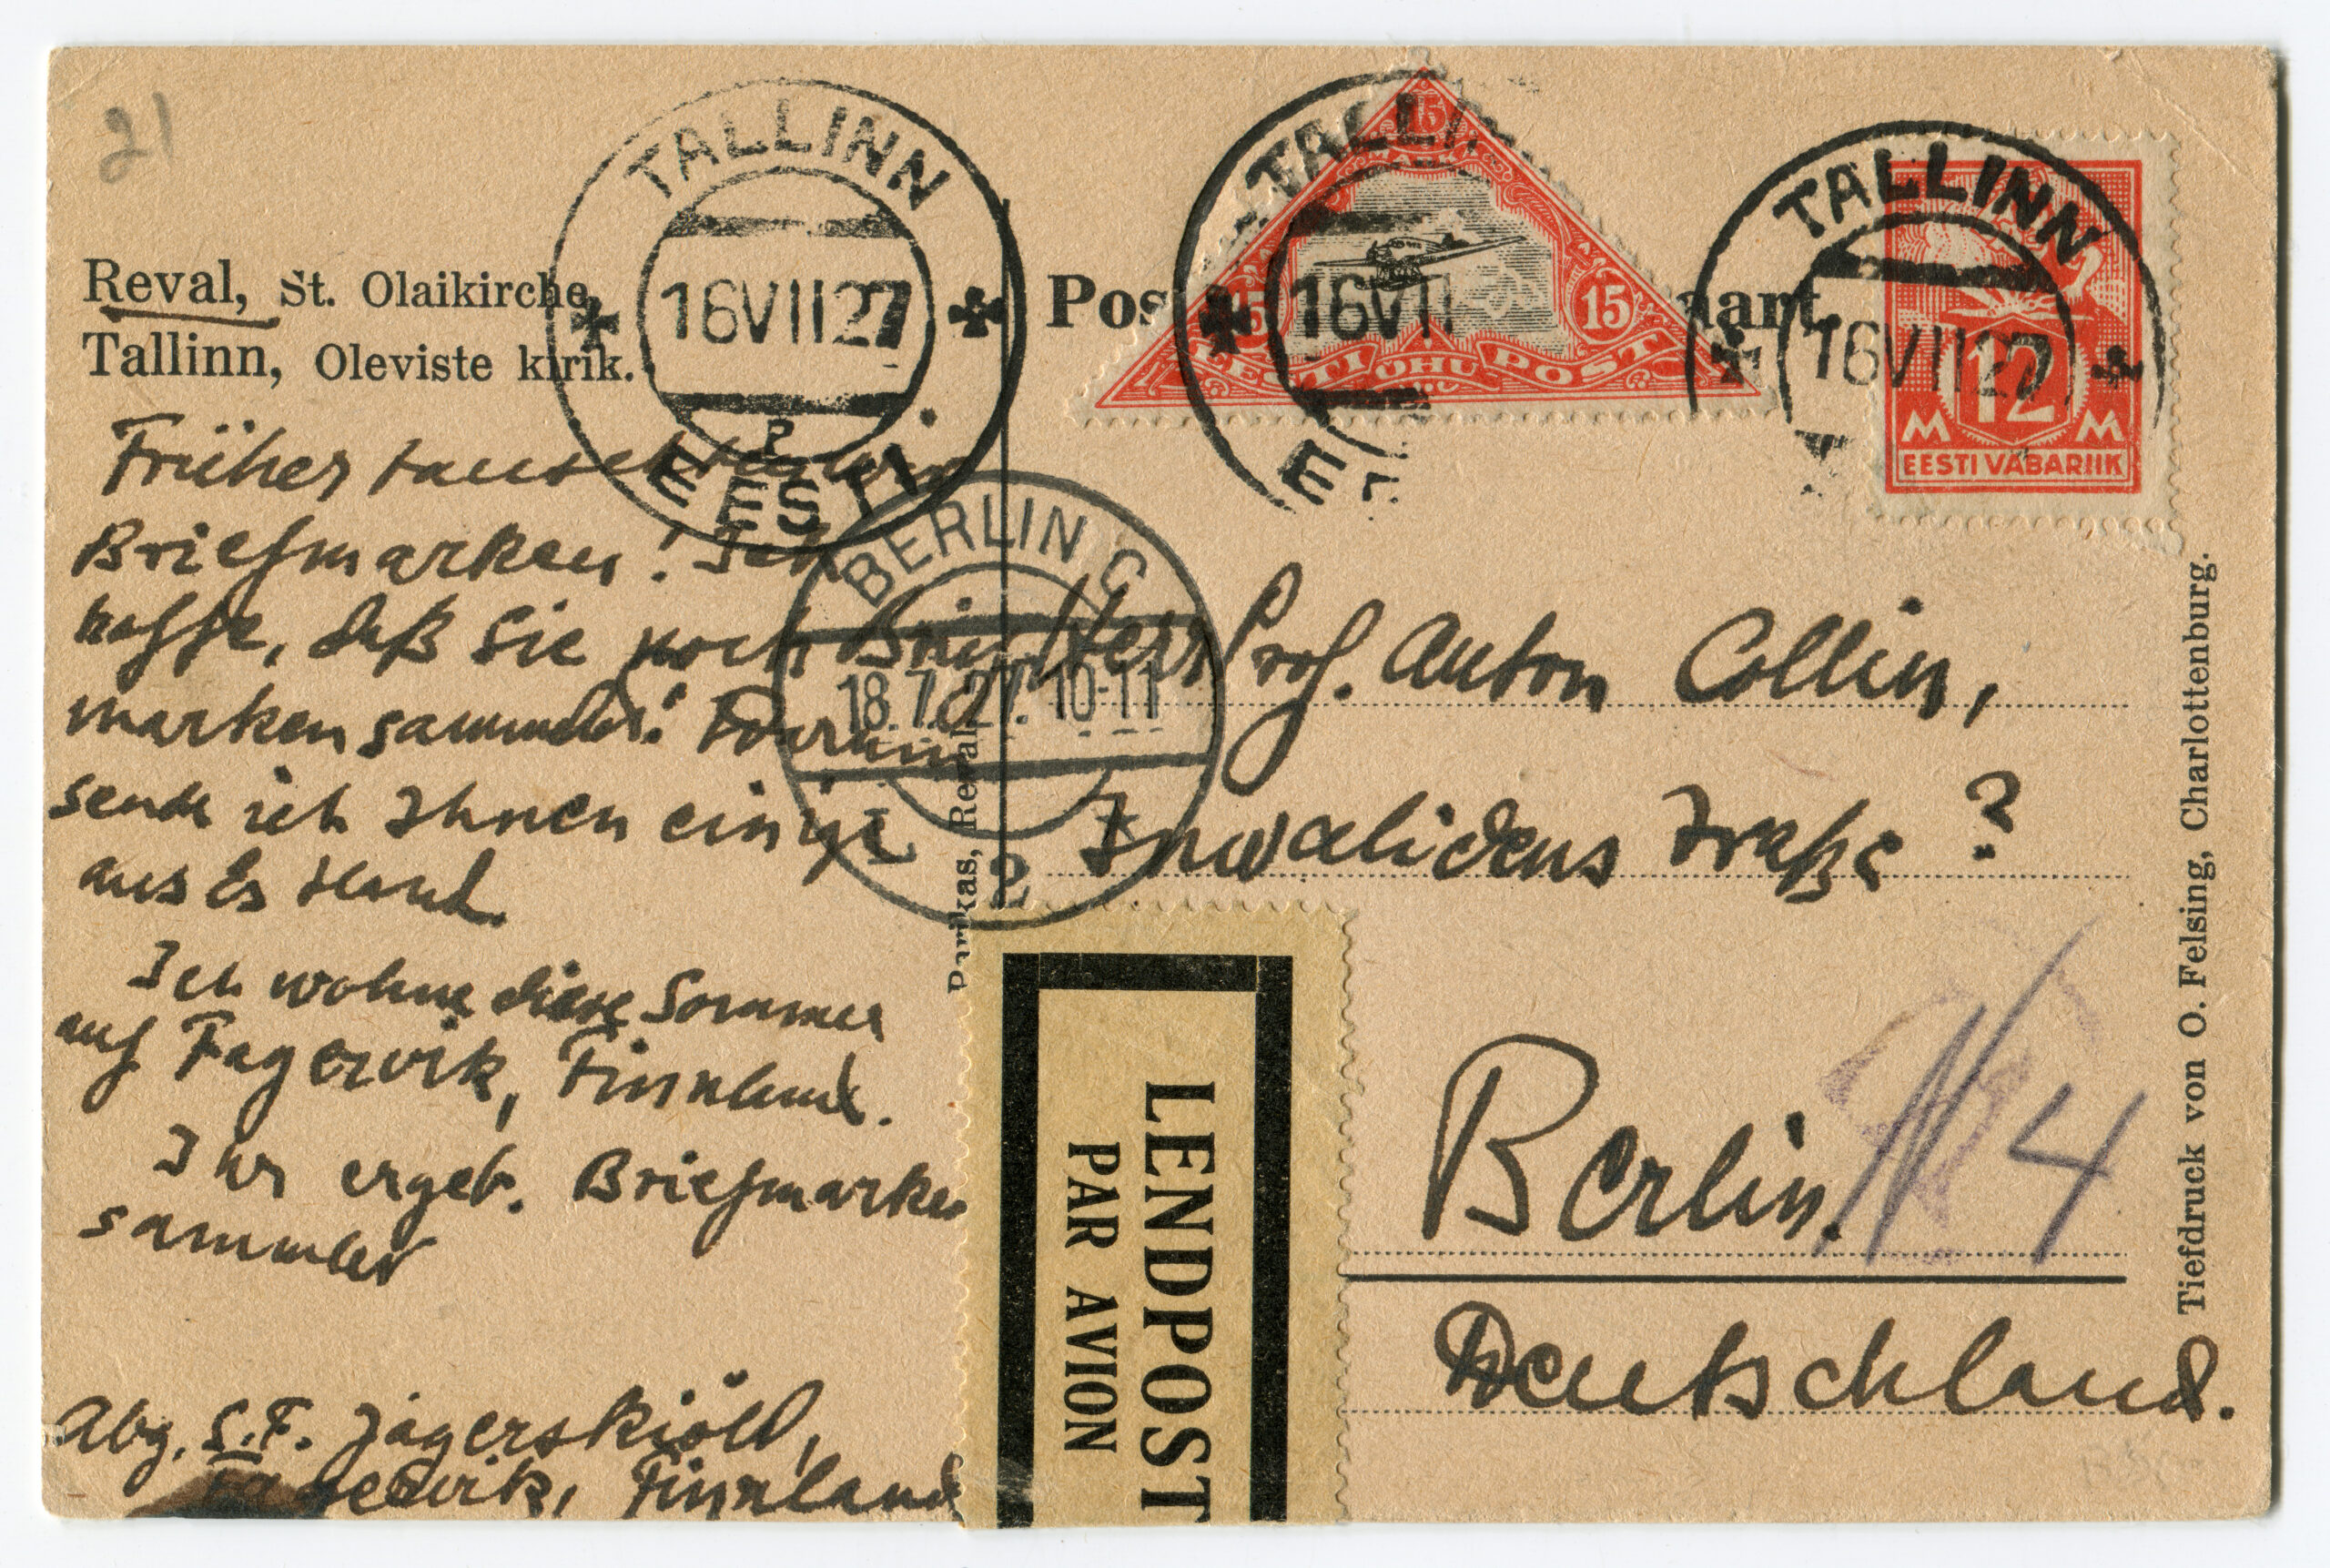 21
Reval, St. Olaikirche,
Tallinn, Oleviste kirik.
Früher tauschten wir
Briefmarken! Ich
hoffe, daß Sie noch Brief
marken sammeln! Darum
sende ich Ihnen einige
aus Estland.
Ich wohne diese Sommer
auf Fagervik, Finnland.
Ihr ergeb. Briefmarken
sammler
Abg. S.F. Jägerskiöld,
Fagervik, Finnland
TALLINN
16 VII 27
P
EESTI
TALLINN
16 VII
EESTI
TALLINN
16 VII 27
BERLIN C
18.7.27. 10-11
2
15
15
15
EESTI ÕHU POST
12
M M
EESTI VABARIIK
Pos aart
Herr Prof. Anton Collin,
Invalidenstraße ?
Berlin. N 4
Deutschland.
LENDPOST
PAR AVION
Parikas, Reval
Tiefdruck von O. Felsing, Charlottenburg.